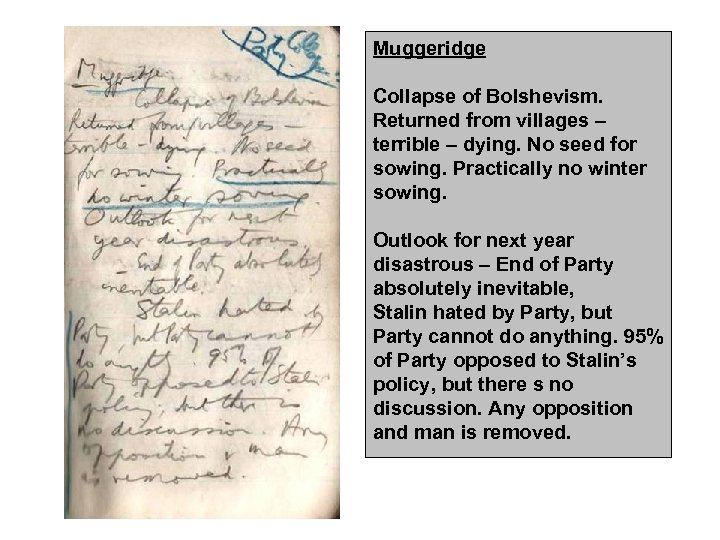 Party Collapse
Muggeridge
Collapse of Bolshevism
Returned from villages –
terrible – dying. No seed
for sowing. Practically
no winter sowing.
Outlook for next
year disastrous.
– End of Party absolutely
inevitable.
Stalin hated by
Party, but Party cannot
do anyth. 95% of
Party opposed to Stalin's
policy, but there is
no discussion. Any
opposition & man
is removed.
Muggeridge
Collapse of Bolshevism.
Returned from villages –
terrible – dying. No seed for
sowing. Practically no winter
sowing.
Outlook for next year
disastrous – End of Party
absolutely inevitable,
Stalin hated by Party, but
Party cannot do anything. 95%
of Party opposed to Stalin’s
policy, but there s no
discussion. Any opposition
and man is removed.